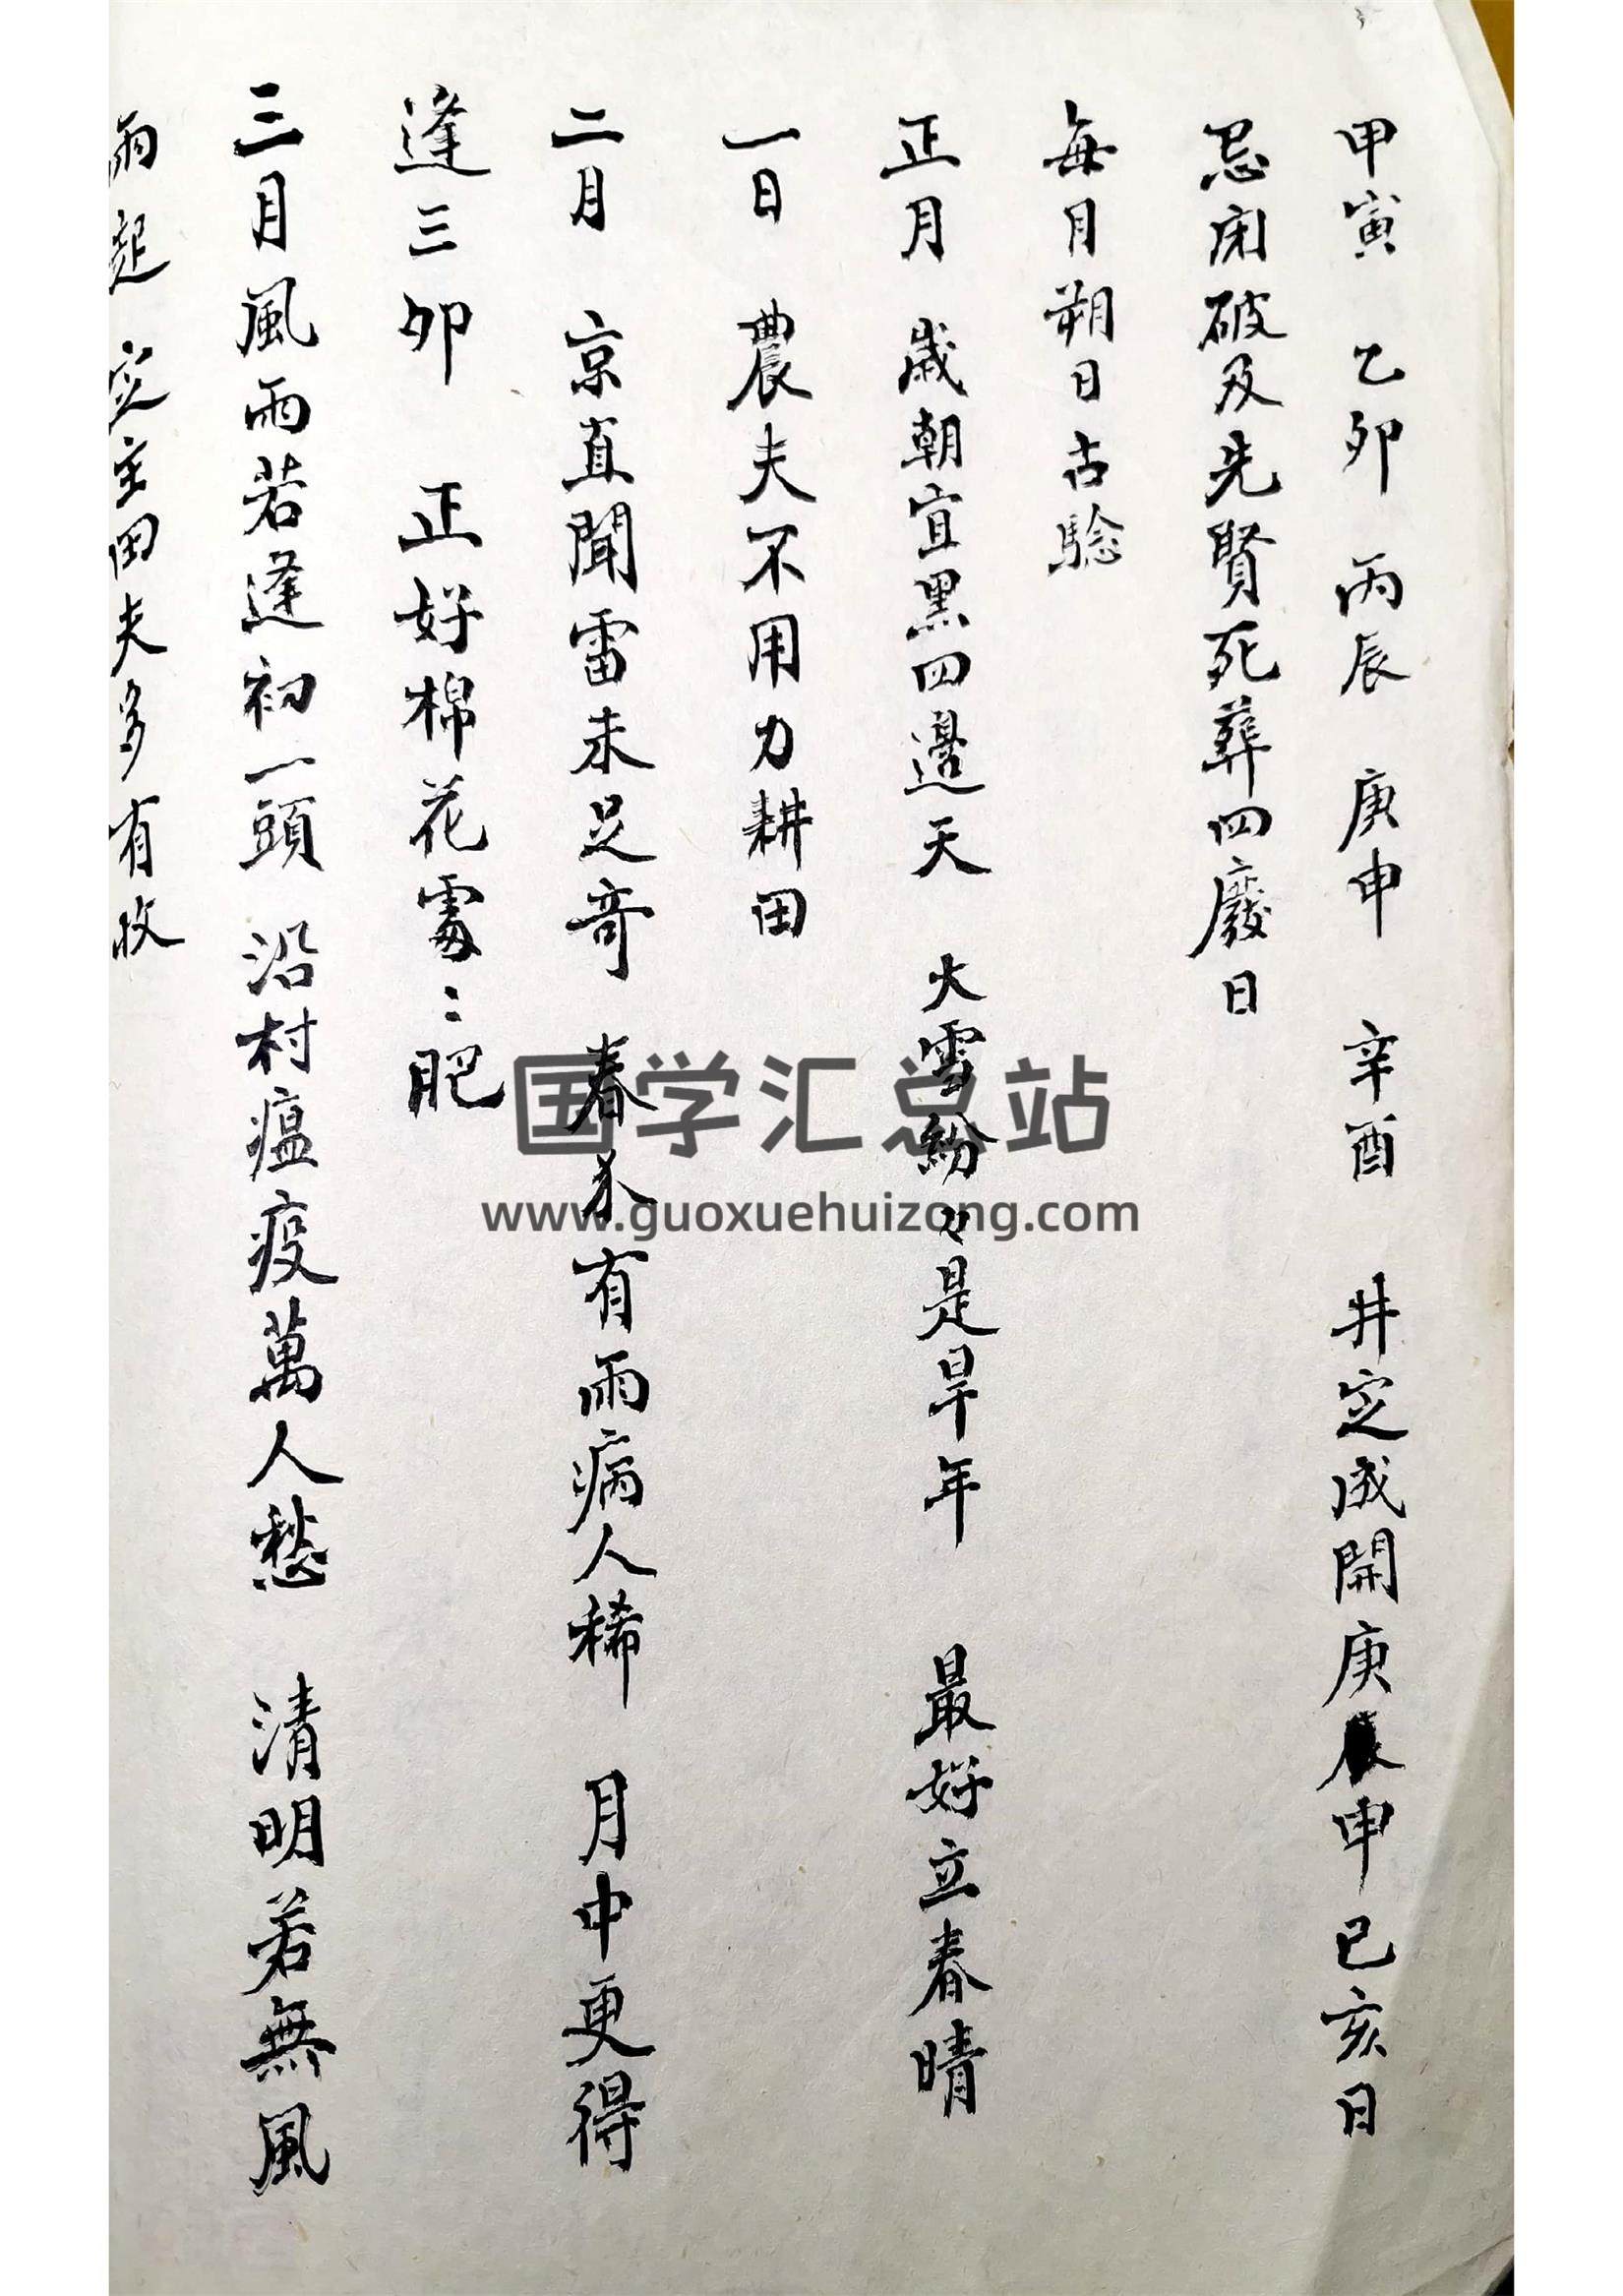 甲寅 乙卯 丙辰 庚申 辛酉 井定成開庚申已亥日
忌闭破及先賢死葬四廢日
每月朔日古騐
正月 歲朝宜黑四邉天 大雪紛々是旱年 最好立春晴
一日 農夫不用力耕田
二月 京直聞雷未足奇 春分有雨病人稀 月中更得
逢三卯 正好棉花䖏〻肥
三月風雨若逢初一頭 沿村瘟疫萬人愁 清明若無風
雨起 定主田夫多有收
国学汇总站
www.guoxuehuizong.com